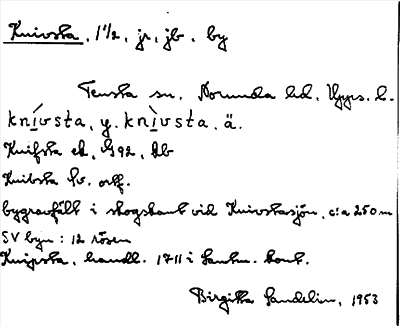 Knivsta, 1 1/2, jr, jb, by
Tensta sn, Norunda hd, Upps. l.
knívsta, y. knìvsta, ä.
Knifsta ek, G92, Db
Knibsta Sv. ortf.
bygravfält i skogskant vid Knivstasjön, c:a 250 m
SV byn: 12 rösen
Knipsta, handl. 1711 i Lantm. kont.
Birgitta Sandelin, 1953